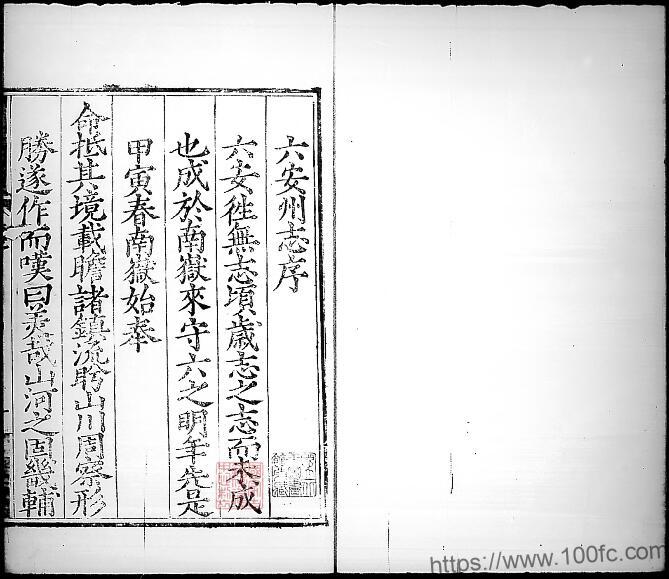 六安州志序
六安徃無志頃歲志之志而未成
也成於南嶽來守六之明年先是
甲寅春南嶽始奉
命抵其境載瞻諸鎮流盻山川周察形
勝遂作而嘆曰美哉山河之固畿輔
https://www.100fc.com